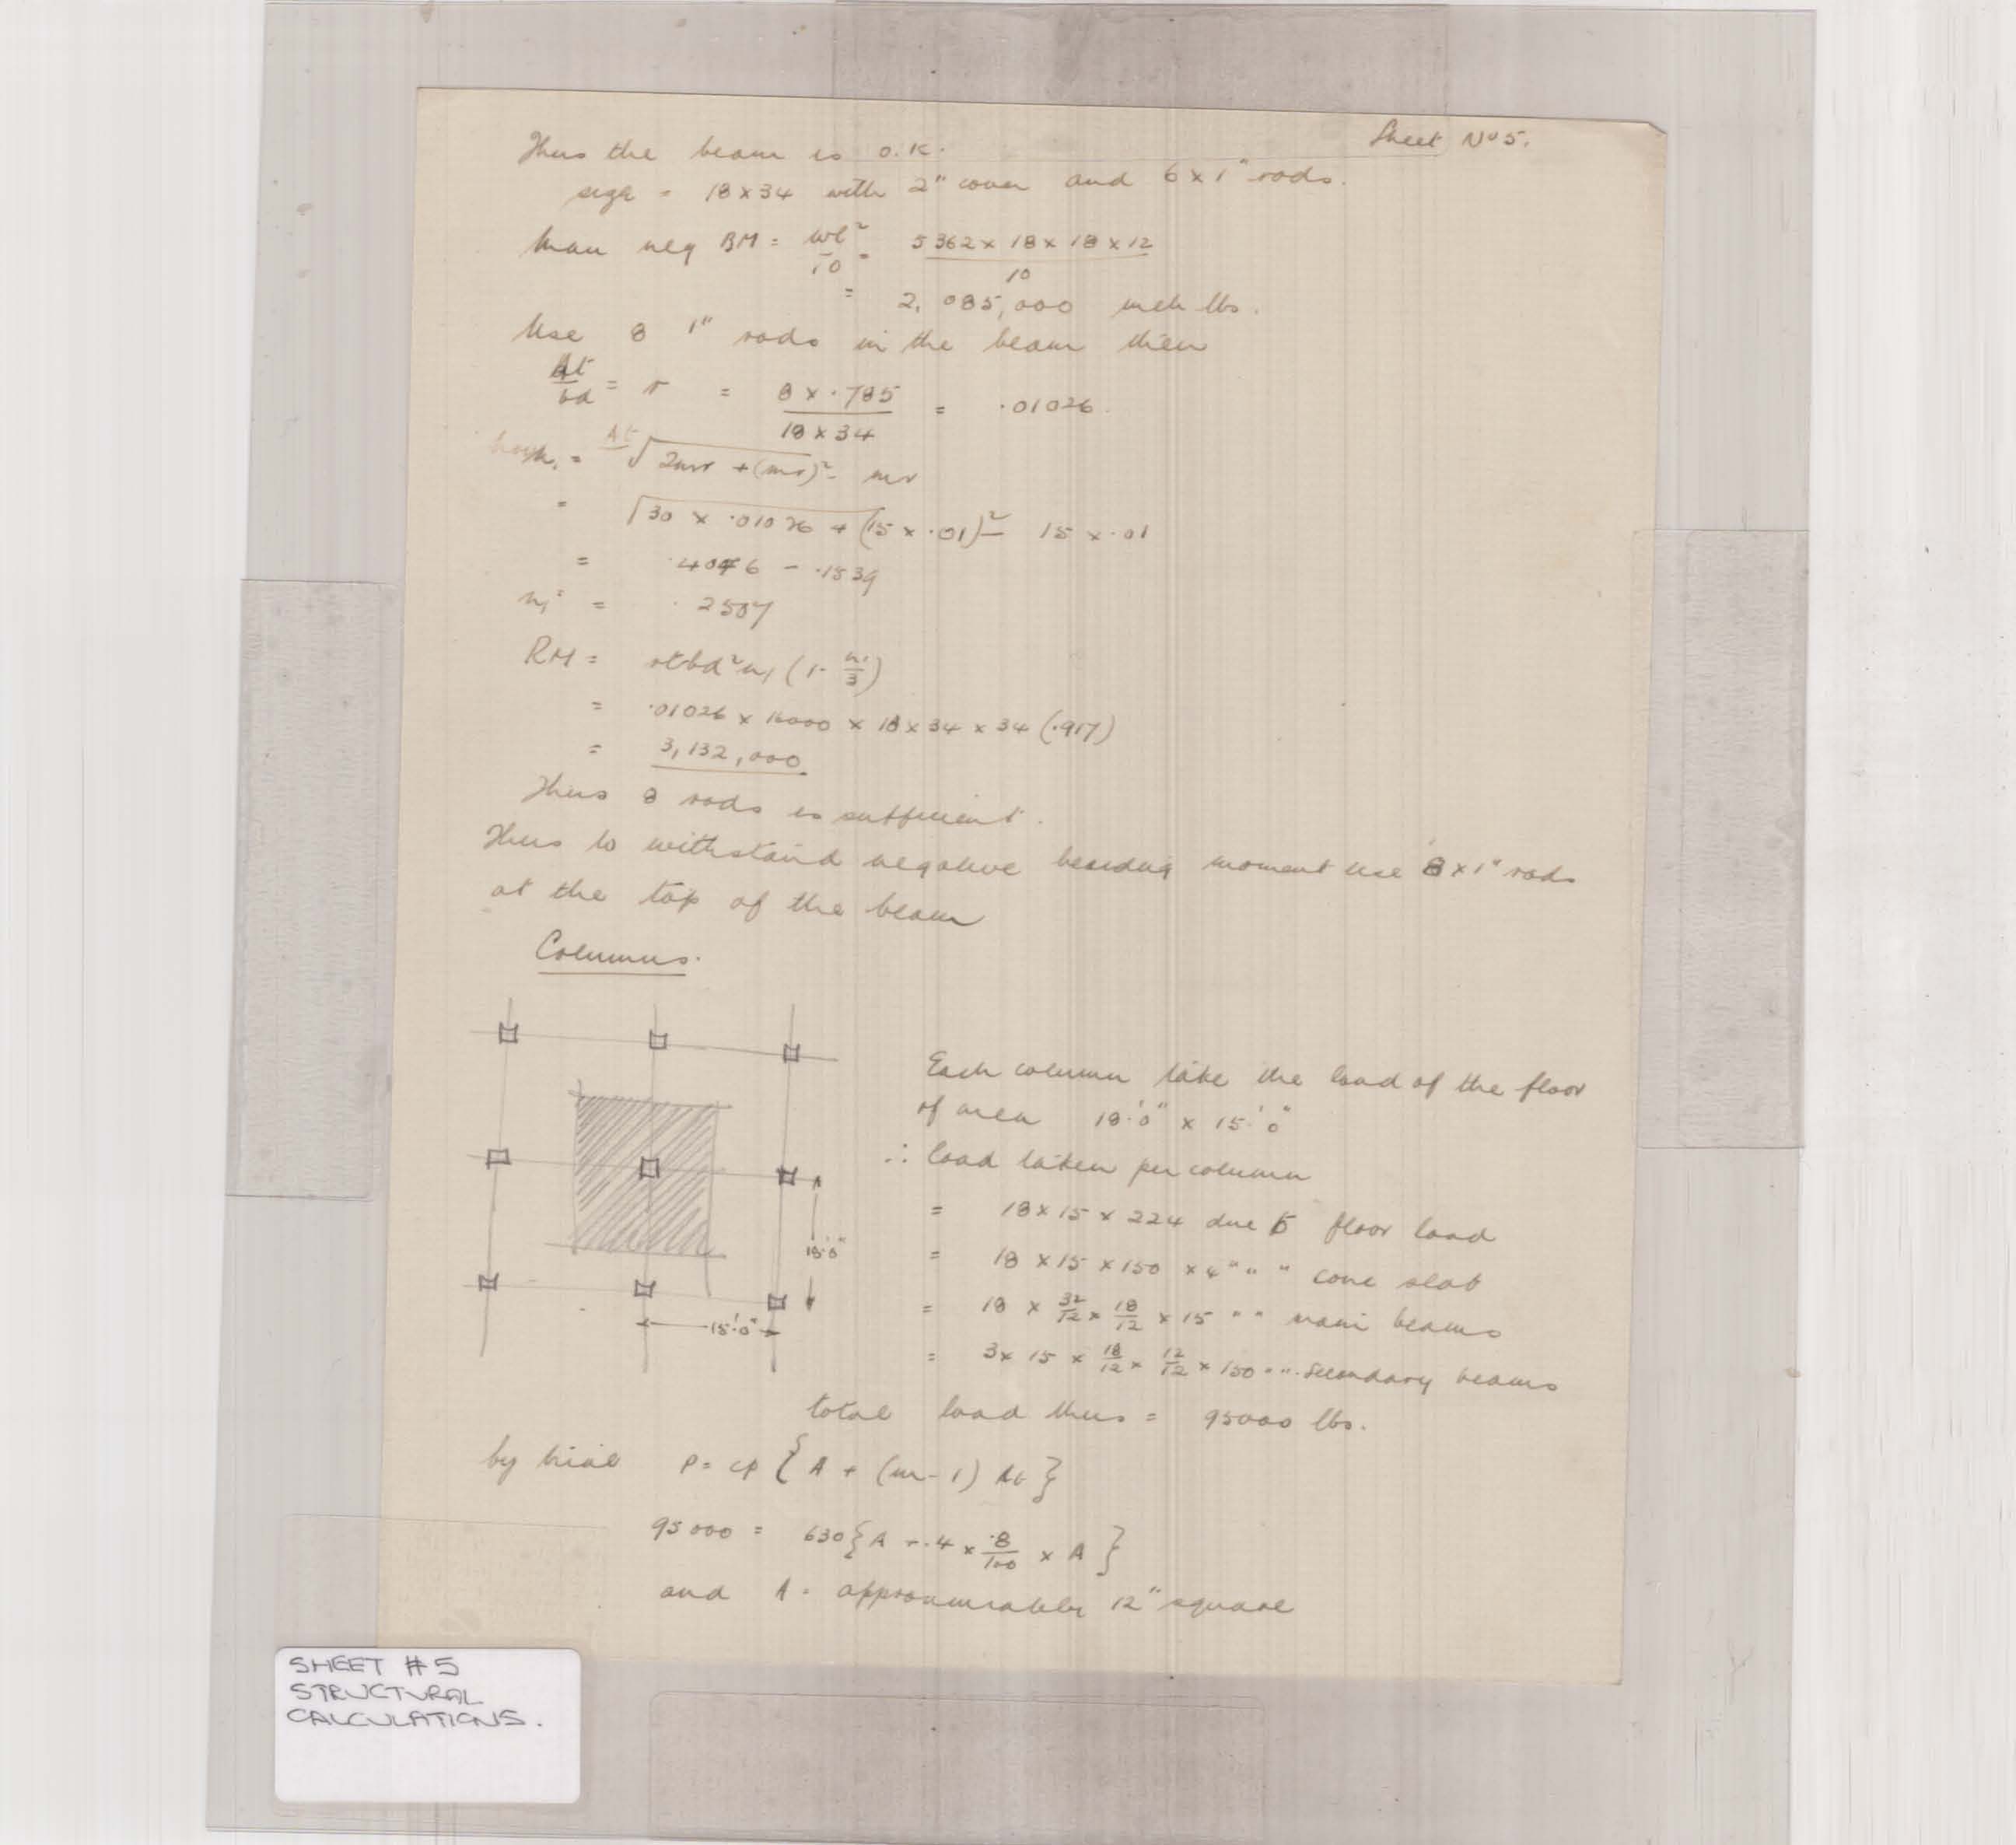 Sheet No 5.
Thus the beam is O.K.
size = 18 x 34 with 2" cover and 6 x 1" rods.
Max neg BM = wl²/10 = 5362 x 18 x 18 x 12 / 10
= 2,085,000 inch lbs.
Use 8 1" rods in the beam then
At/bd = r = 8 x .785 / 18 x 34 = .01026.
n₁ = √2mr + (mr)² - mr
= √30 x .01026 + (15 x .01)² - 15 x .01
= .4046 - .1539
n₁ = .2507
RM = rtbd²n₁ (1 - n₁/3)
= .01026 x 16000 x 18 x 34 x 34 (.917)
= 3,132,000
Thus 8 rods is sufficient.
Thus to withstand negative bending moment use 8 x 1" rods
at the top of the beam
Columns.
Each column take the load of the floor
of area 18'.0" x 15'.0"
∴ load taken per column
= 18 x 15 x 224 due to floor load
= 18 x 15 x 150 x 4" " " conc slab
= 18 x 32/12 x 18/12 x 15 " " main beams
= 3 x 15 x 18/12 x 12/12 x 150 " " secondary beams
18'.0"
15'.0"
total load thus = 95000 lbs.
by trial P = cp { A + (m - 1) At }
95000 = 630 { A + .4 x .8/100 x A }
and A = approximately 12" square
SHEET #5
STRUCTURAL
CALCULATIONS.